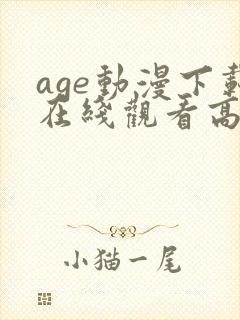 age動漫下載
在綫觀看高
小猫一尾